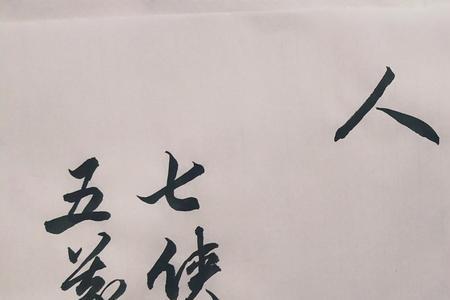 人
七侠
五義